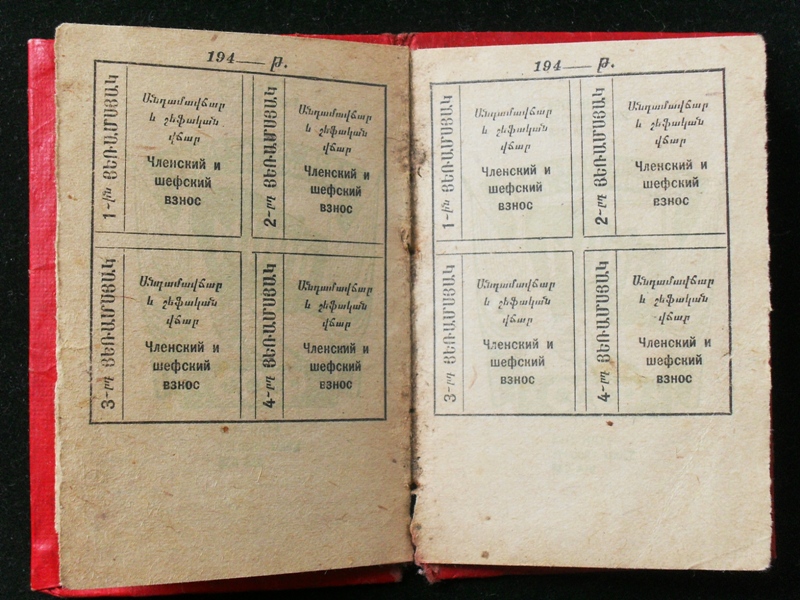 194— թ.
1-ին ՅԵՌԱՄՍՅԱԿ
Անդամավճար
և շեֆական
վճար
Членский и
шефский
взнос
2-րդ ՅԵՌԱՄՍՅԱԿ
Անդամավճար
և շեֆական
վճար
Членский и
шефский
взнос
3-րդ ՅԵՌԱՄՍՅԱԿ
Անդամավճար
և շեֆական
վճար
Членский и
шефский
взнос
4-րդ ՅԵՌԱՄՍՅԱԿ
Անդամավճար
և շեֆական
վճար
Членский и
шефский
взнос
194— թ.
1-ին ՅԵՌԱՄՍՅԱԿ
Անդամավճար
և շեֆական
վճար
Членский и
шефский
взнос
2-րդ ՅԵՌԱՄՍՅԱԿ
Անդամավճար
և շեֆական
վճար
Членский и
шефский
взнос
3-րդ ՅԵՌԱՄՍՅԱԿ
Անդամավճար
և շեֆական
վճար
Членский и
шефский
взнос
4-րդ ՅԵՌԱՄՍՅԱԿ
Անդամավճար
և շեֆական
վճար
Членский и
шефский
взнос